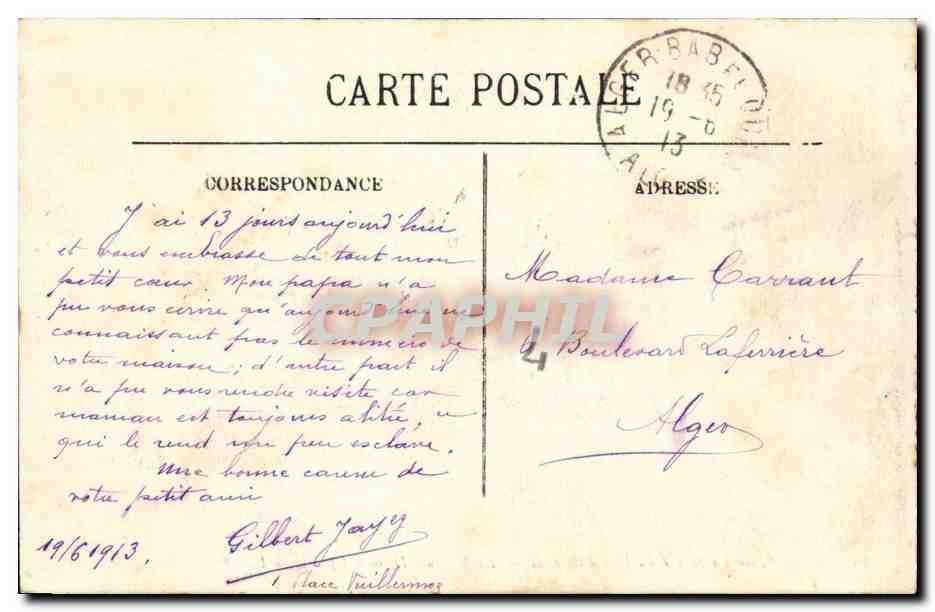 CARTE POSTALE
ALGER-BAB-EL-OU
18 35
19 -6
13
CORRESPONDANCE
ADRESSE
J'ai 13 jours aujourd'hui
et vous embrasse de tout mon
petit cœur. Mon papa n'a
pu vous écrire qu'aujourd'hui ne
connaissant pas le numéro de
votre maison; d'autre part il
n'a pu vous rendre visite car
maman est toujours alitée, ce
qui le rend un peu esclave.
Une bonne caresse de
votre petit ami
Gilbert
19/6 1913.
1 Place Vuillermoz
Madame Carraut
4 Boulevard Laferrière
Alger
CPAPHIL